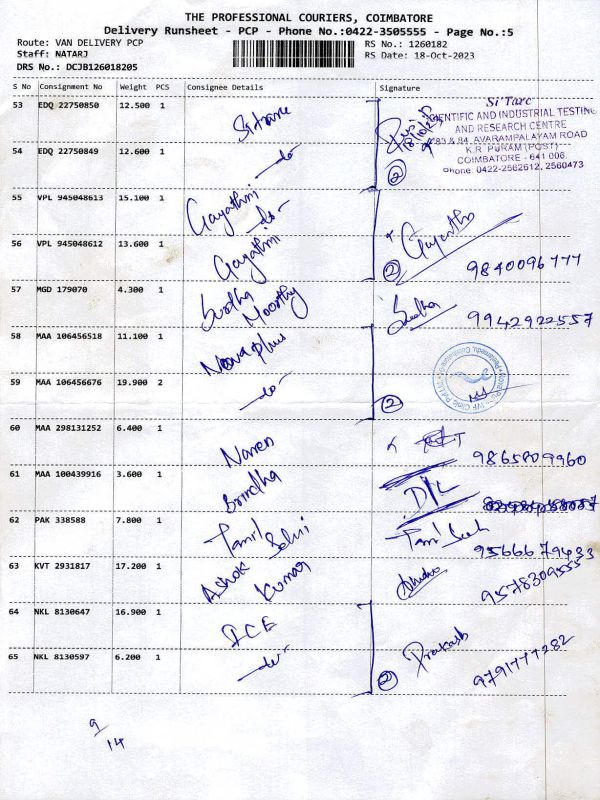 THE PROFESSIONAL COURIERS, COIMBATORE
Delivery Runsheet - PCP - Phone No.:0422-3505555 - Page No.:5
Route: VAN DELIVERY PCP RS No.: 1260182
Staff: NATARJ RS Date: 18-Oct-2023
DRS No.: DCJB126018205
S No Consignment No Weight PCS Consignee Details Signature
53 EDQ 22750850 12.500 1 Sitarc
Si'Tarc
SCIENTIFIC AND INDUSTRIAL TESTING
AND RESEARCH CENTRE
83 & 84, AVARAMPALAYAM ROAD
K.R. PURAM (POST)
COIMBATORE - 641 006.
Phone: 0422-2562612, 2560473
18/10/23
54 EDQ 22750849 12.600 1 -do- 2
55 VPL 945048613 15.100 1 Gayathri
-do-
56 VPL 945048612 13.600 1 Gayathri 2 Gayathri 9840096777
57 MGD 179070 4.300 1 Sudha Moorthy Sudha 9942922557
58 MAA 106456518 11.100 1 Nova plus
59 MAA 106456676 19.900 2 -do- 2
60 MAA 298131252 6.400 1 Naren 9865809960
61 MAA 100439916 3.600 1 D/L
62 PAK 338588 7.800 1 Tamil Selvi 9566679433
63 KVT 2931817 17.200 1 Ashok Kumar 9578309555
64 NKL 8130647 16.900 1 ICE
65 NKL 8130597 6.200 1 -do- 2 Prakash 9791777282
9/14